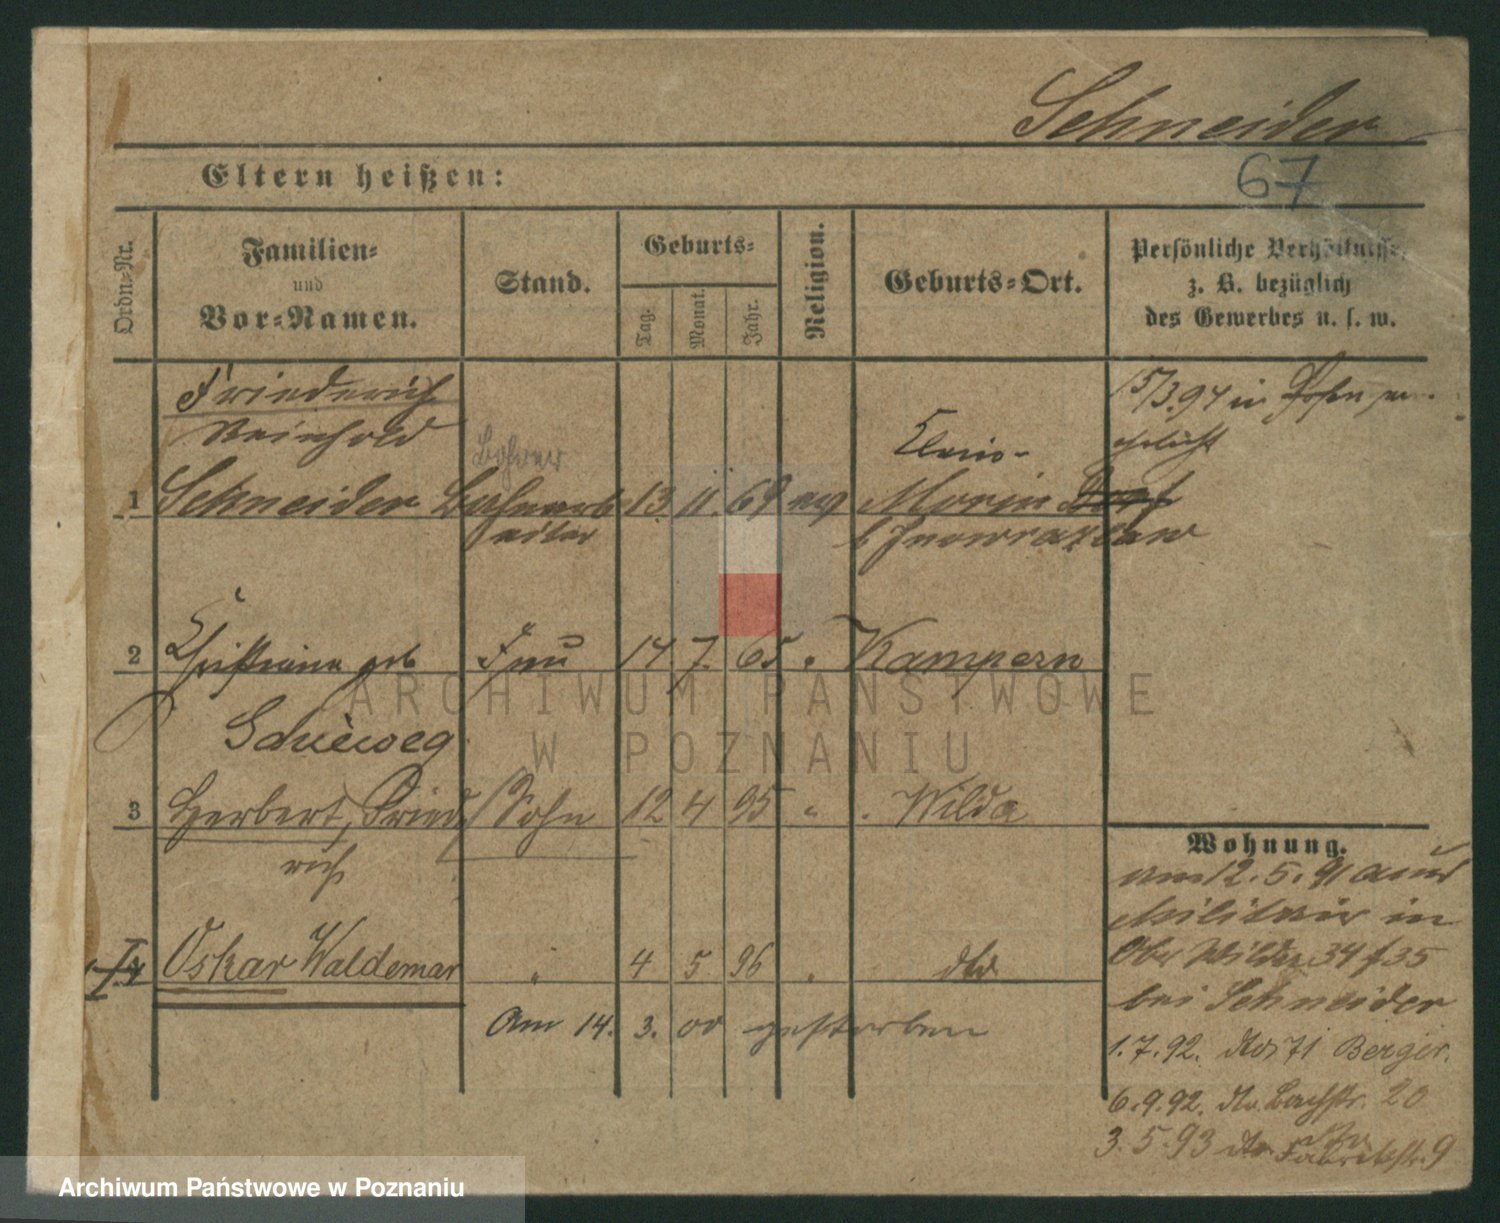 Schneider
67
Eltern heißen:
Ordn=Nr.
Familien=
und
Vor=Namen.
Stand.
Geburts=
Tag.
Monat.
Jahr.
Religion.
Geburts=Ort.
Persönliche Verhältnisse,
z. B. bezüglich
des Gewerbes u. s. w.
Friederich
Reinhold
1 Schneider Bahnarb 13 11 69 ev Morin Dorf
eiter b Inowrazlaw
15/3.94 in Posen
2 Christiane geb Frau 14 7. 65 " Kampern
3 Herbert, Fried Sohn 12 4 95 " Wilda
rich
4 Oskar Waldemar " 4 5 96 " dto
Am 14. 3. 00 gestorben
Wohnung.
am 12.5.91 aus
Militair in
Ober Wilda 34/35
bei Schneider
1.7.92. dto 71 Berger.
6.9.92. dto Bachstr. 20
3.5.93 dto Fabrikstr. 9
ARCHIWUM PAŃSTWOWE
W POZNANIU
Archiwum Państwowe w Poznaniu